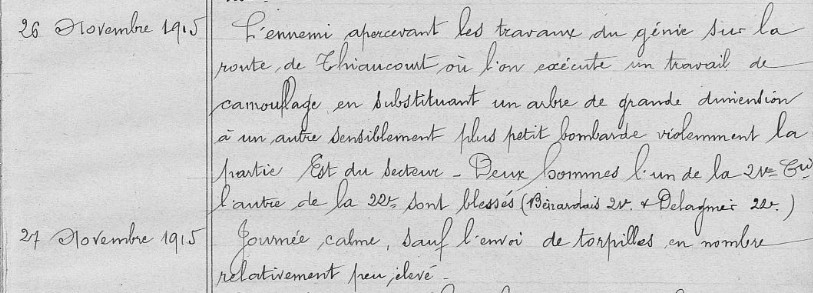 26 Novembre 1915 L'ennemi apercevant les travaux du génie sur la
route de Thiaucourt où l'on exécute un travail de
camouflage en substituant un arbre de grande dimension
à un autre sensiblement plus petit bombarde violemment la
partie Est du secteur - Deux hommes l'un de la 21e Cie
l'autre de la 22e sont blessés ( 21e & 22e.)
27 Novembre 1915 Journée calme, sauf l'envoi de torpilles en nombre
relativement peu élevé -